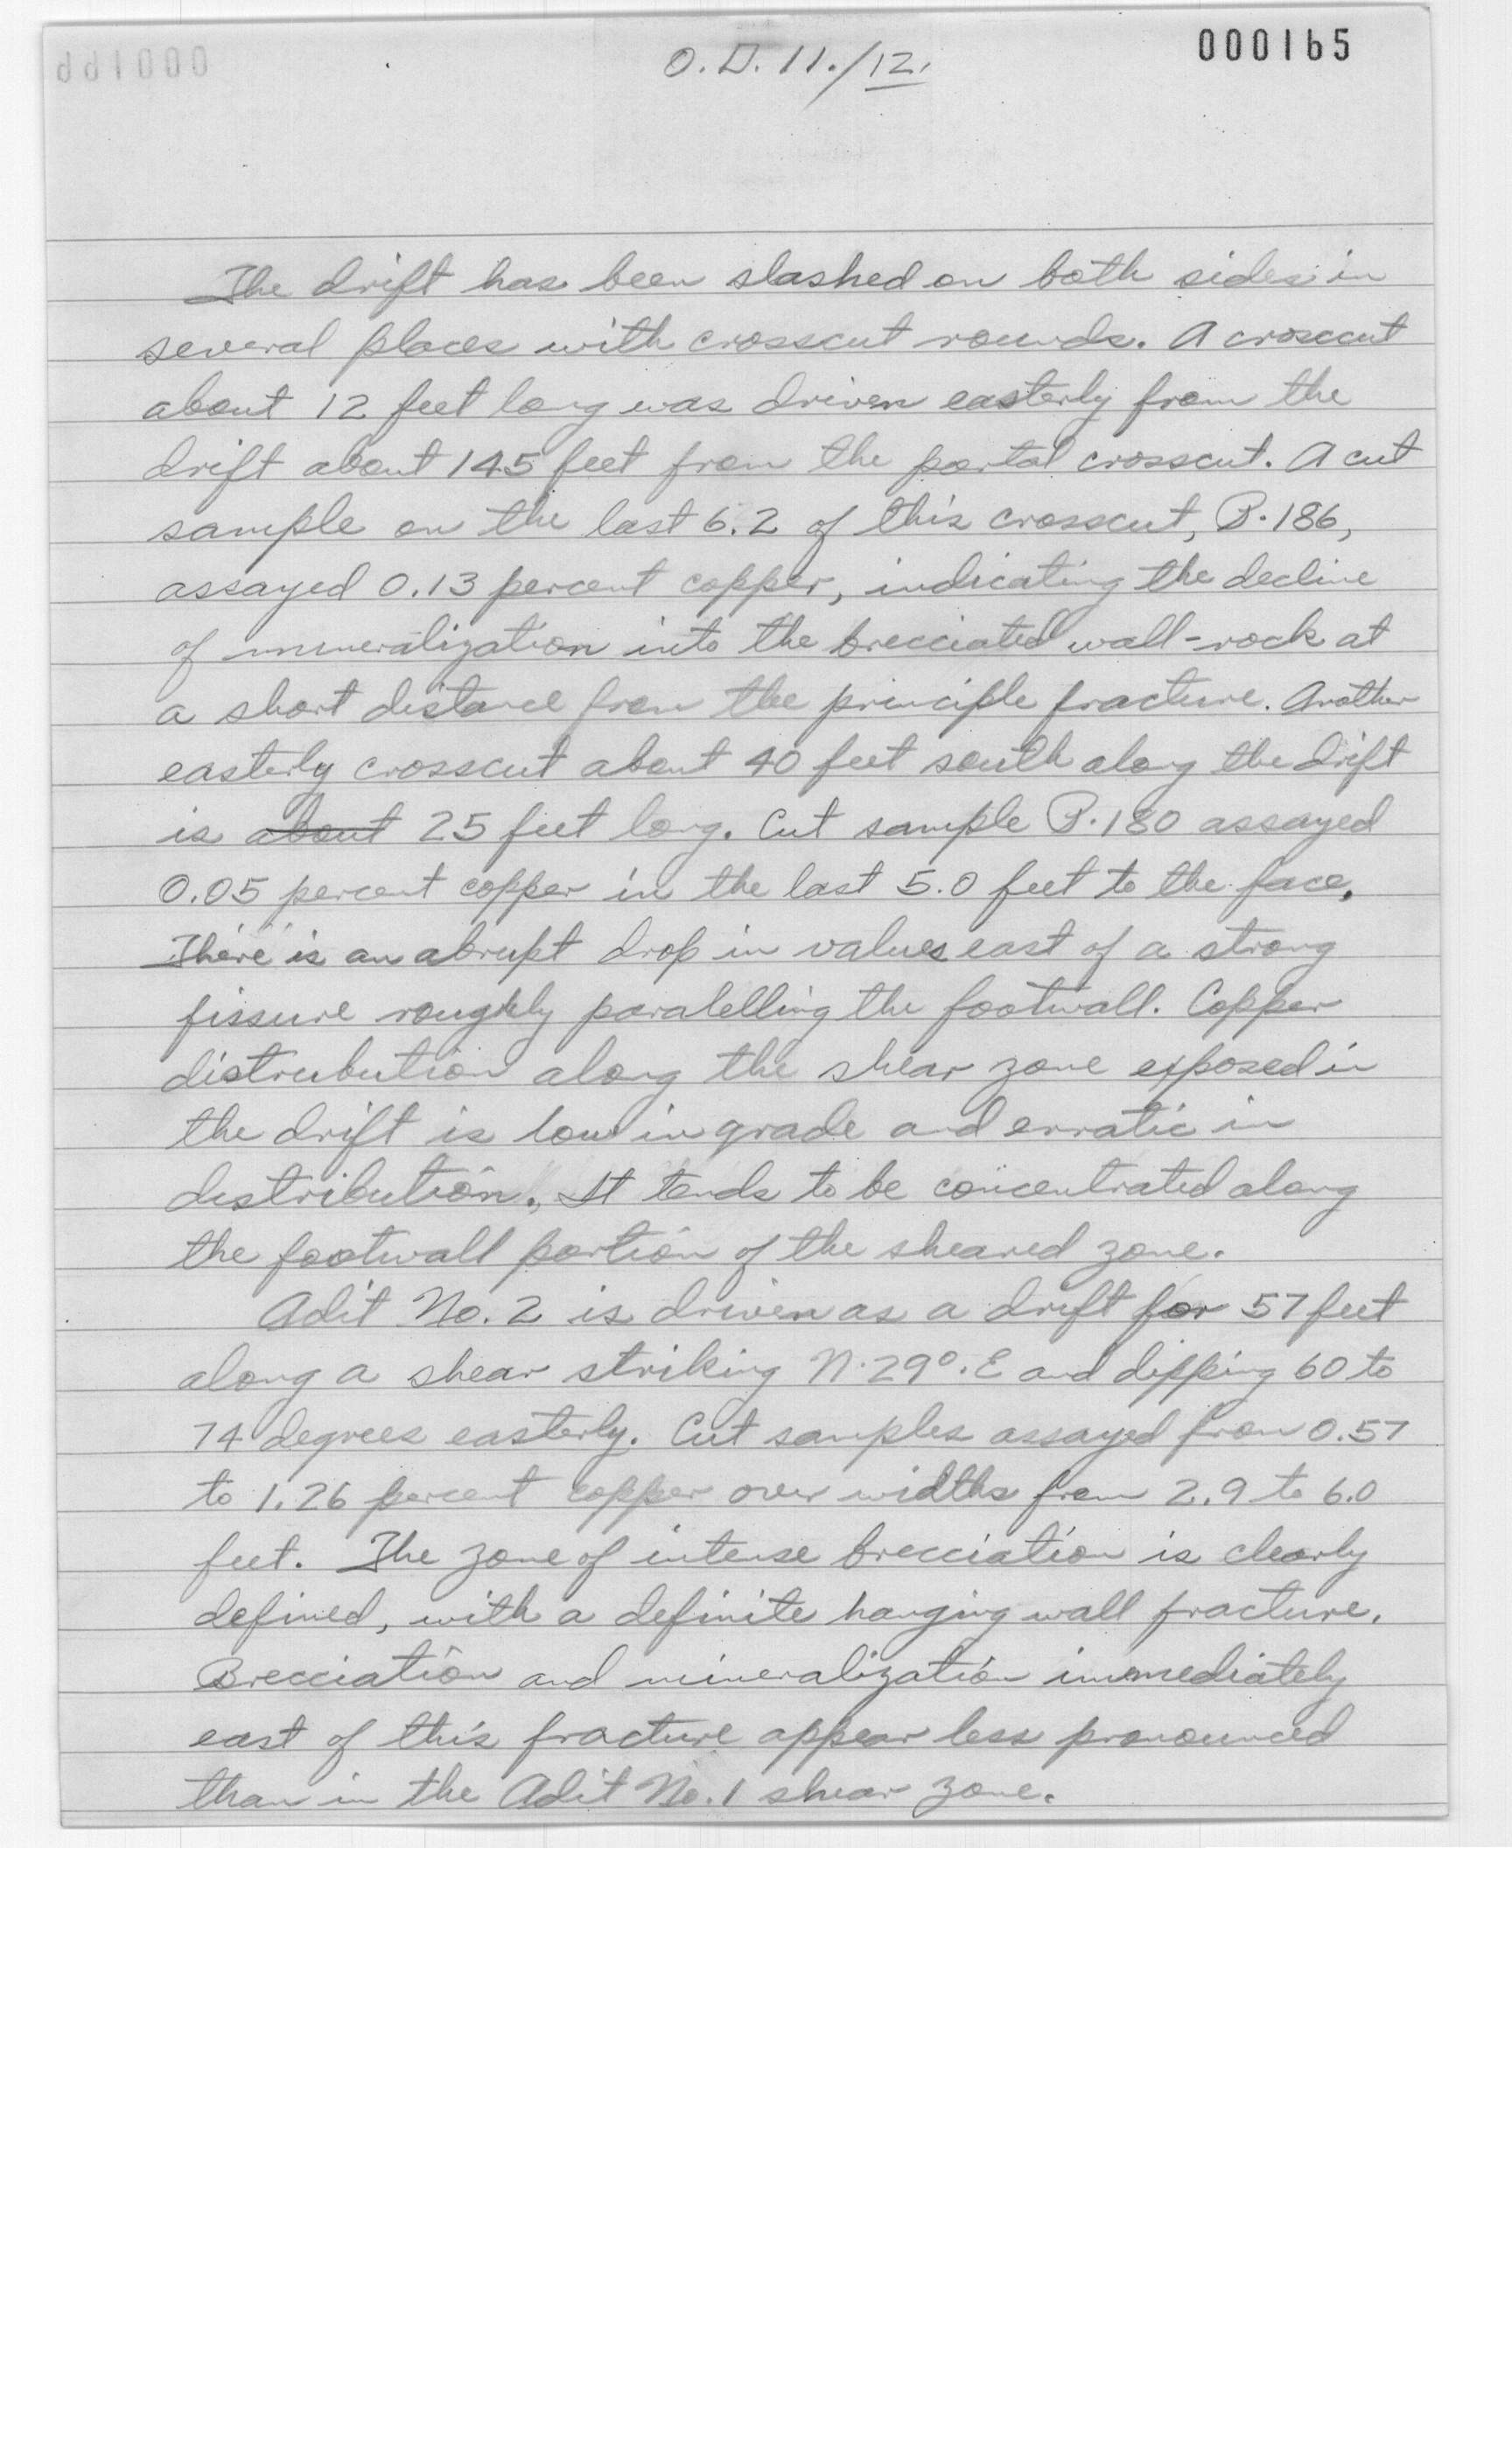 O.D. 11./12.
000165
The drift has been slashed on both sides in
several places with crosscut rounds. A crosscut
about 12 feet long was driven easterly from the
drift about 145 feet from the portal crosscut. A cut
sample on the last 6.2 of this crosscut, B.186,
assayed 0.13 percent copper, indicating the decline
of mineralization into the brecciated wall-rock at
a short distance from the principle fracture. Another
easterly crosscut about 40 feet south along the drift
is about 25 feet long. Cut sample B.180 assayed
0.05 percent copper in the last 5.0 feet to the face.
There is an abrupt drop in values east of a strong
fissure roughly paralelling the footwall. Copper
distrubution along the shear zone exposed in
the drift is low in grade and erratic in
distribution. It tends to be concentrated along
the footwall portion of the sheared zone.
Adit No. 2 is driven as a drift for 57 feet
along a shear striking N.29°.E and dipping 60 to
74 degrees easterly. Cut samples assayed from 0.57
to 1.26 percent copper over widths from 2.9 to 6.0
feet. The zone of intense brecciation is clearly
defined, with a definite hanging wall fracture.
Brecciation and mineralization immediately
east of this fracture appear less pronounced
than in the Adit No. 1 shear zone.